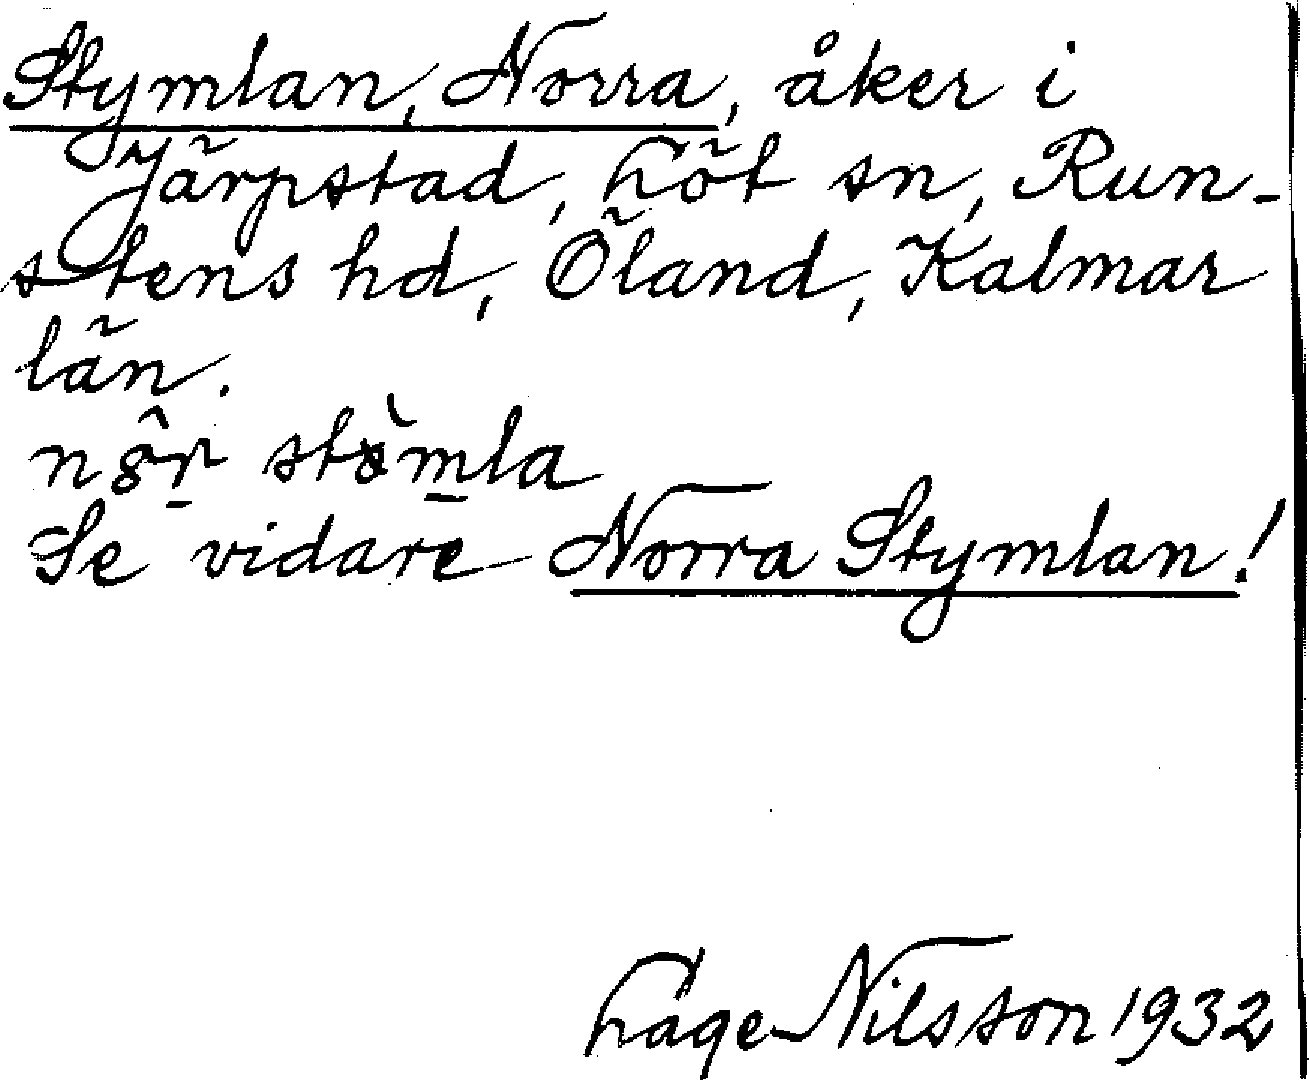 Stymlan, Norra, åker i
Järpstad, Löt sn, Run-
stens hd, Öland, Kalmar
län.
stömla
Se vidare Norra Stymlan!
Lage Nilsson 1932